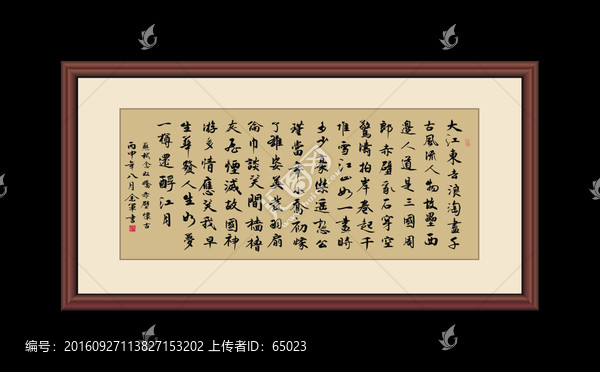 大江東去浪淘盡千
古風流人物故壘西
邊人道是三國周
郎赤壁亂石穿空
驚濤拍岸卷起千
堆雪江山如一畫時
多少豪傑遥想公
瑾當年小喬初嫁
了雄姿英發羽扇
綸巾談笑間檣櫓
灰飛煙滅故國神
游多情應笑我早
生華發人生如夢
一樽還酹江月
蘇軾念奴嬌赤壁懷古
丙申年八月金軍書
编号：20160927113827153202 上传者ID：65023